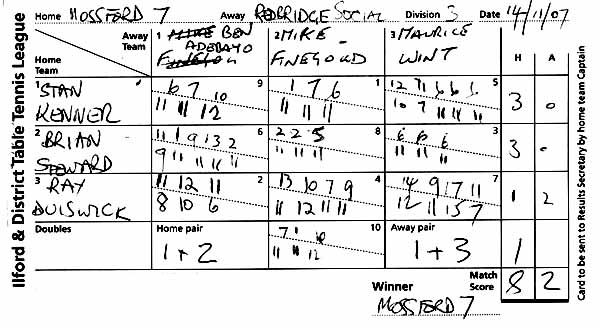 Ilford & District Table Tennis League
Home MOSSFORD 7 Away REDBRIDGE SOCIAL Division 3 Date 14/11/07
Away Team 1 BEN ADEBAYO 2 MIKE FINEGOLD 3 MAURICE WINT H A
Home Team
1 STAN KENNER 9 1 5 3 0
6 7 10 1 7 6 12 7 6 6
11 11 12 11 11 11 10 7 11 11 11
2 BRIAN STEWARD 6 8 3 3 -
11 1 9 13 2 2 2 5 6 6 6
9 11 11 11 11 11 11 11 11 11 11
3 RAY DUISWICK 2 4 7 1 2
11 12 11 13 10 7 9 14 9 17 11
8 10 6 11 12 11 11 12 11 15 7
Doubles Home pair 10 Away pair
1+2 7 10 1+3 1
11 11 12
Winner Match Score 8 2
MOSSFORD 7
Card to be sent to Results Secretary by home team Captain